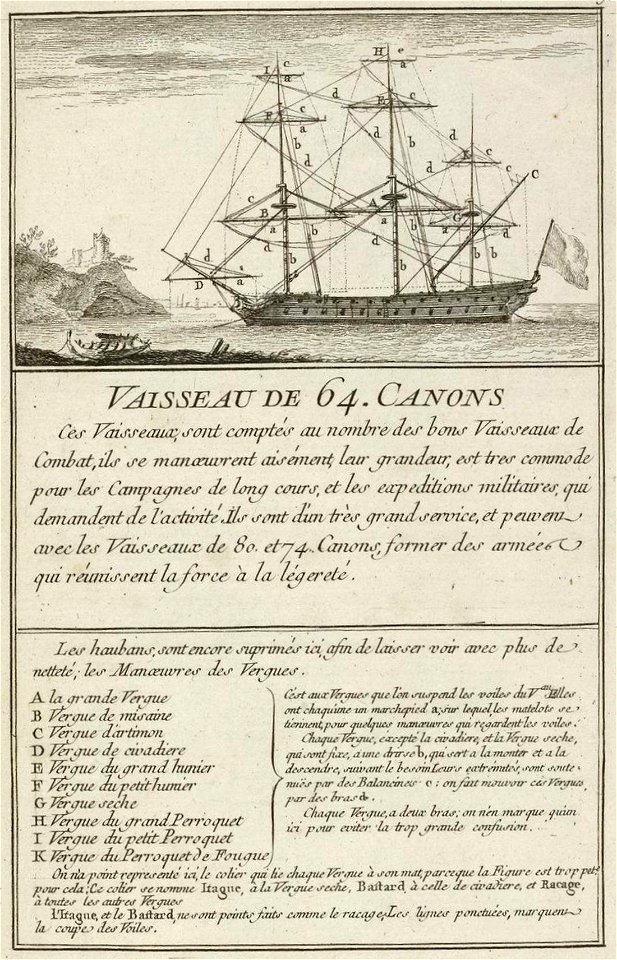 H e
I c a a
d d
F c E c
a b a
d b
K c
c C
c A c
B a a G a
d b b b b
d c
D a
VAISSEAU DE 64. CANONS
Ces Vaisseaux, sont comptés au nombre des bons Vaisseaux de
Combat, ils se manœuvrent aisément, leur grandeur, est tres commode
pour les Campagnes de long cours, et les expeditions militaires, qui
demandent de l'activité. Ils sont d'un très grand service, et peuvent
avec les Vaisseaux de 80. et 74. Canons, former des armées
qui réunissent la force à la légereté.
Les haubans, sont encore suprimés ici, afin de laisser voir avec plus de
netteté; les Manœuvres des Vergues.
A la grande Vergue
B Vergue de misaine
C Vergue d'artimon
D Vergue de civadiere
E Vergue du grand hunier
F Vergue du petit hunier
G Vergue seche
H Vergue du grand Perroquet
I Vergue du petit Perroquet
K Vergue du Perroquet de Fougue
C'est aux Vergues que l'on suspend les voiles du Veau Elles
ont chaquune un marchepied a; sur lequel les matelots se
tiennent, pour quelques manœuvres qui regardent les voiles.
Chaque Vergue, excepté la civadiere, et la Vergue seche,
qui sont fixe, a une drisse b, qui sert a la monter et a la
descendre, suivant le besoin. Leurs extremités, sont soute-
nuës par des Balancines c: on fait mouvoir ces Vergues
par des bras d.
Chaque Vergue, a deux bras; on n'en marque qu'un
ici pour eviter la trop grande confusion.
On n'a point representé ici, le colier qui lie chaque Vergue à son mat, parceque la Figure est trop petite
pour cela; Ce colier se nomme Itague, à la Vergue seche, Bastard à celle de civadiere, et Racage,
à toutes les autres Vergues
L'Itague, et le Bastard, ne sont points faits comme le racage; Les lignes ponctuées, marquent
la coupe des Voiles.